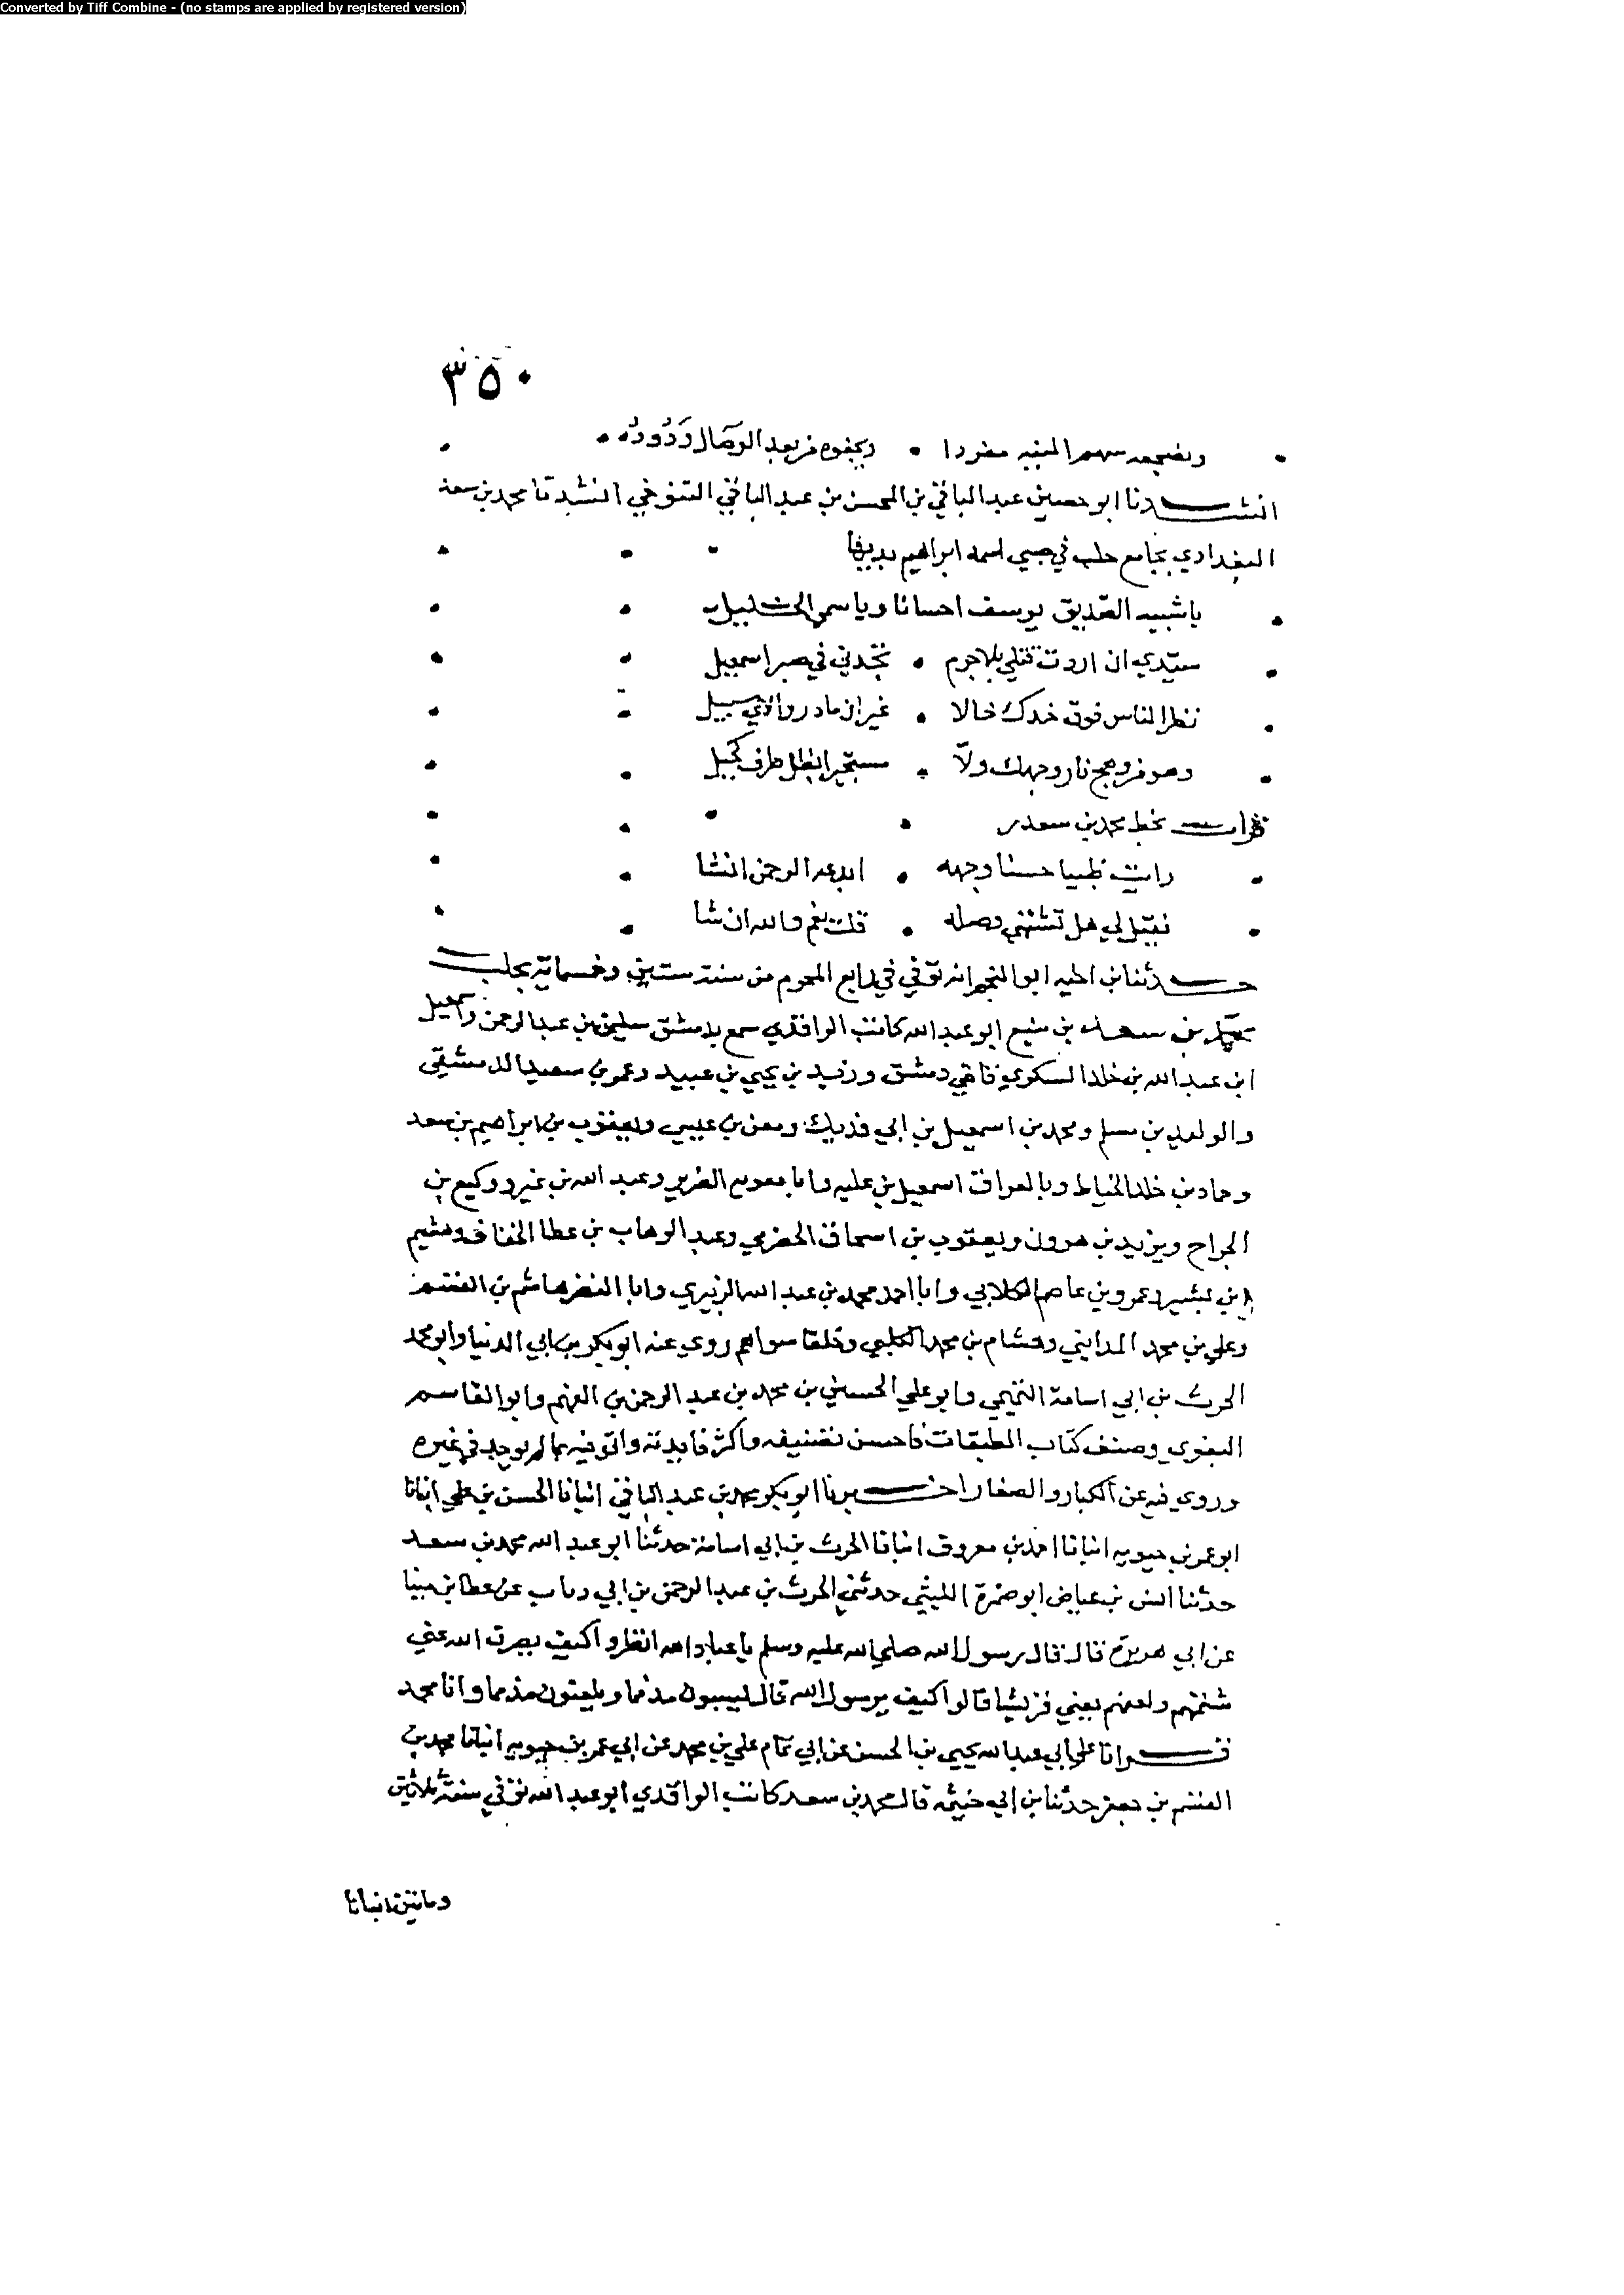 Converted by Tiff Combine - (no stamps are applied by registered version)
٣٥٠
سهم المنيه مفردا • ويجفوه من بعد الوصال وَدُودُه
انشدنا ابو حصين عبد الباقي بن المحسن بن عبد الباقي التنوخي انشدنا محمد بن سعد
البغدادي بجامع حلب في صبي اسمه ابراهيم بديها
يا شبيه الصّديق يوسف احسانا ويا سمي الخليل
سيّدي ان اردت قتلي بلا جرم • تجدني في صبر اسمعيل
نظر الناس فوق خدك خالا • غير ان ما دروا لاي سبيل
وهو من وهج نار وجهك ولّا • مستجيرا بظل طرف كحيل
قرات بخط محمد بن سعد
رايت ظبيا حسنا وجهه • ابدعه الرحمن انشا
فقيل لي هل تشتهي وصله • قلت نعم والله ان شا
حدثنا ابن اخيه ابو النجم انه توفي في رابع المحرم من سنة ستين وخمسماية بحلب
محمد بن سعد بن منيع ابو عبد الله كاتب الواقدي سمع بدمشق سليمن بن عبد الرحمن واسمعيل
ابن عبد الله بن خلد السكري قاضي دمشق وزيد بن يحيي بن عبيد وعمر بن سعيد الدمشقي
والوليد بن مسلم ومحمد بن اسمعيل بن ابي فديك ومعن بن عيسي ويعقوب بن ابراهيم بن سعد
وحماد بن خلد الخياط وبالعراق اسمعيل بن عليه وابا معويه الضرير وعبد الله بن نمير ووكيع بن
الجراح ويزيد بن هرون ويعقوب بن اسحاق الحضرمي وعبد الوهاب بن عطا الخفاف وهشيم
ابن بشير وعمرو بن عاصم الكلابي وابا احمد محمد بن عبد الله الزبيري وابا النضر هاشم بن القسم
وعلي بن محمد المدايني وهشام بن محمد الكلبي وخلقا سواهم روي عنه ابو بكر بن ابي الدنيا وابو محمد
الحرث بن ابي اسامة التميمي وابو علي الحسين بن محمد بن عبد الرحمن بن الفهم وابو القاسم
البغوي وصنف كتاب الطبقات فاحسن تصنيفه واكثر فايدته واتي فيه بما لم يوجد في غيره
وروي فيه عن الكبار والصغار اخبرنا ابو بكر محمد بن عبد الباقي انبانا الحسن بن علي انبانا
ابو عمر بن حيويه انبانا احمد بن معروف انبانا الحرث بن ابي اسامة حدثنا ابو عبد الله محمد بن سعد
حدثنا انس بن عياض ابو ضمرة الليثي حدثني الحرث بن عبد الرحمن بن ابي دباب عن عطا بن مينا
عن ابي هريرة قال قال رسول الله صلي الله عليه وسلم يا عباد الله انظروا كيف يصرف الله عني
شتمهم ولعنهم يعني قريشا قالوا كيف يرسول الله قال يسبون مذمما ويلعنون مذمما وانا محمد
قرانا علي ابي عبد الله يحيي بن الحسن عن ابي تمام علي بن محمد عن ابي عمر بن حيويه انبانا محمد بن
القسم بن جعفر حدثنا بن ابي خيثمه قال محمد بن سعد كاتب الواقدي ابو عبد الله توفي سنة ثلاثين
ومايتين انبانا